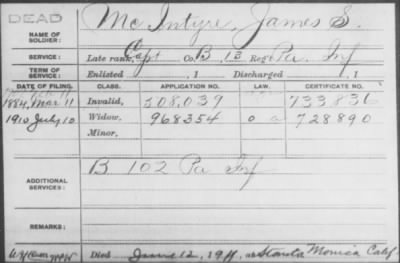 DEAD
NAME OF SOLDIER: Mc Intyre, James S.
SERVICE: Late rank, Capt Co. B, 13 Reg't Pa. Inf
TERM OF SERVICE: Enlisted , 1 Discharged , 1
DATE OF FILING. CLASS. APPLICATION NO. LAW. CERTIFICATE NO.
1884, Mar 11 Invalid, 508,039 733,836
1910 July 10 Widow, 968354 o a 728890
Minor,
ADDITIONAL SERVICES: B 102 Pa Inf
REMARKS:
Died June 12, 1911, at Santa Monica Calif